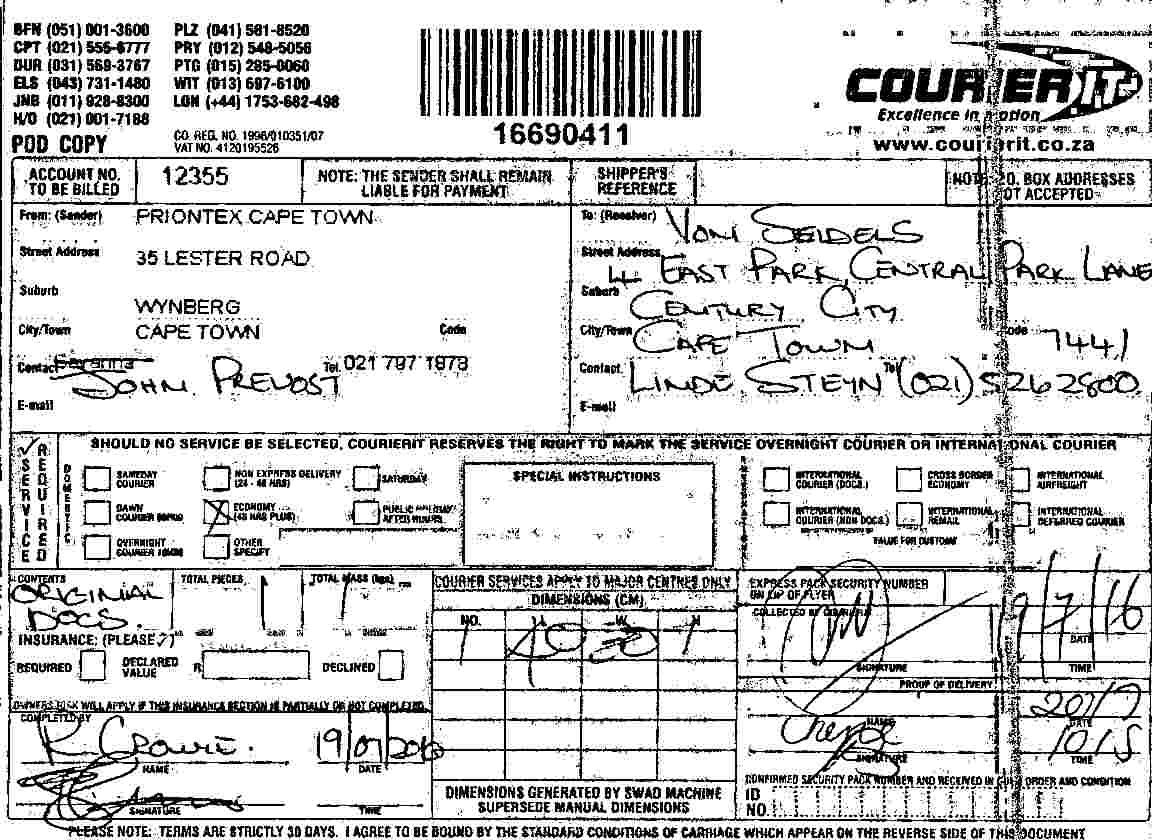 BFN (051) 001-3600 PLZ (041) 581-8520
CPT (021) 555-6777 PRY (012) 548-5056
DUR (031) 569-3767 PTG (015) 285-0060
ELS (043) 731-1480 WIT (013) 697-6100
JNB (011) 928-8300 LON (+44) 1753-682-498
H/O (021) 001-7188
POD COPY
CO. REG. NO. 1996/010351/07
VAT NO. 4120195526
16690411
COURIERIT
Excellence in motion
www.courierit.co.za
ACCOUNT NO. TO BE BILLED 12355
NOTE: THE SENDER SHALL REMAIN LIABLE FOR PAYMENT
SHIPPER'S REFERENCE
BOX ADDRESSES NOT ACCEPTED
From: (Sender) PRIONTEX CAPE TOWN
Street Address 35 LESTER ROAD
Suburb WYNBERG
City/Town CAPE TOWN Code
Contact JOHN PREVOST Tel. 021 797 1878
E-mail
To: (Receiver) VON SEIDELS
Street Address 4 EAST PARK, CENTRAL PARK LANE
Suburb CENTURY CITY
City/Town CAPE TOWN Code 7441
Contact LINDE STEYN Tel (021) 5262800
E-mail
SERVICE REQUIRED
SHOULD NO SERVICE BE SELECTED, COURIERIT RESERVES THE RIGHT TO MARK THE SERVICE OVERNIGHT COURIER OR INTERNATIONAL COURIER
DOMESTIC
SAMEDAY COURIER
NON EXPRESS DELIVERY (24 - 48 HRS)
SATURDAY
DAWN COURIER
ECONOMY (48 HRS PLUS)
PUBLIC HOLIDAY/ AFTER HOURS
OVERNIGHT COURIER
OTHER SPECIFY
SPECIAL INSTRUCTIONS
INTERNATIONAL COURIER (DOCS.)
CROSS BORDER ECONOMY
INTERNATIONAL AIRFREIGHT
INTERNATIONAL COURIER (NON DOCS.)
INTERNATIONAL REMAIL
INTERNATIONAL DEFERRED COURIER
VALUE FOR CUSTOMS
CONTENTS ORIGINIAL DOCS.
TOTAL PIECES 1
TOTAL MASS (kgs) 1
INSURANCE: (PLEASE
REQUIRED
DECLARED VALUE R
DECLINED
OWNERS RISK WILL APPLY IF THIS INSURANCE SECTION IS PARTIALLY OR NOT COMPLETED.
COMPLETED BY
R. CROWIE. 19/07/2016
NAME DATE
SIGNATURE TIME
COURIER SERVICES APPLY TO MAJOR CENTRES ONLY
DIMENSIONS (CM)
NO. L W H
1 40 30 1
DIMENSIONS GENERATED BY SWAD MACHINE SUPERSEDE MANUAL DIMENSIONS
EXPRESS PACK SECURITY NUMBER ON LIP OF FLYER
COLLECTED BY COURIERIT
19/7/16
DATE
SIGNATURE TIME
PROOF OF DELIVERY
20/7
NAME DATE
1015
SIGNATURE TIME
CONFIRMED SECURITY PACK NUMBER AND RECEIVED IN GOOD ORDER AND CONDITION
ID NO.
PLEASE NOTE: TERMS ARE STRICTLY 30 DAYS. I AGREE TO BE BOUND BY THE STANDARD CONDITIONS OF CARRIAGE WHICH APPEAR ON THE REVERSE SIDE OF THIS DOCUMENT